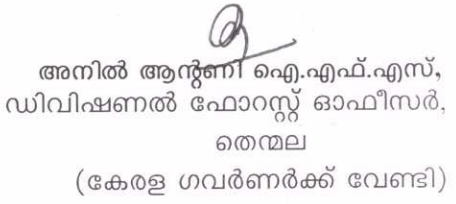 അനിൽ ആന്റണി ഐ.എഫ്.എസ്,
ഡിവിഷണൽ ഫോറസ്റ്റ് ഓഫീസർ,
തെന്മല
(കേരള ഗവർണർക്ക് വേണ്ടി)